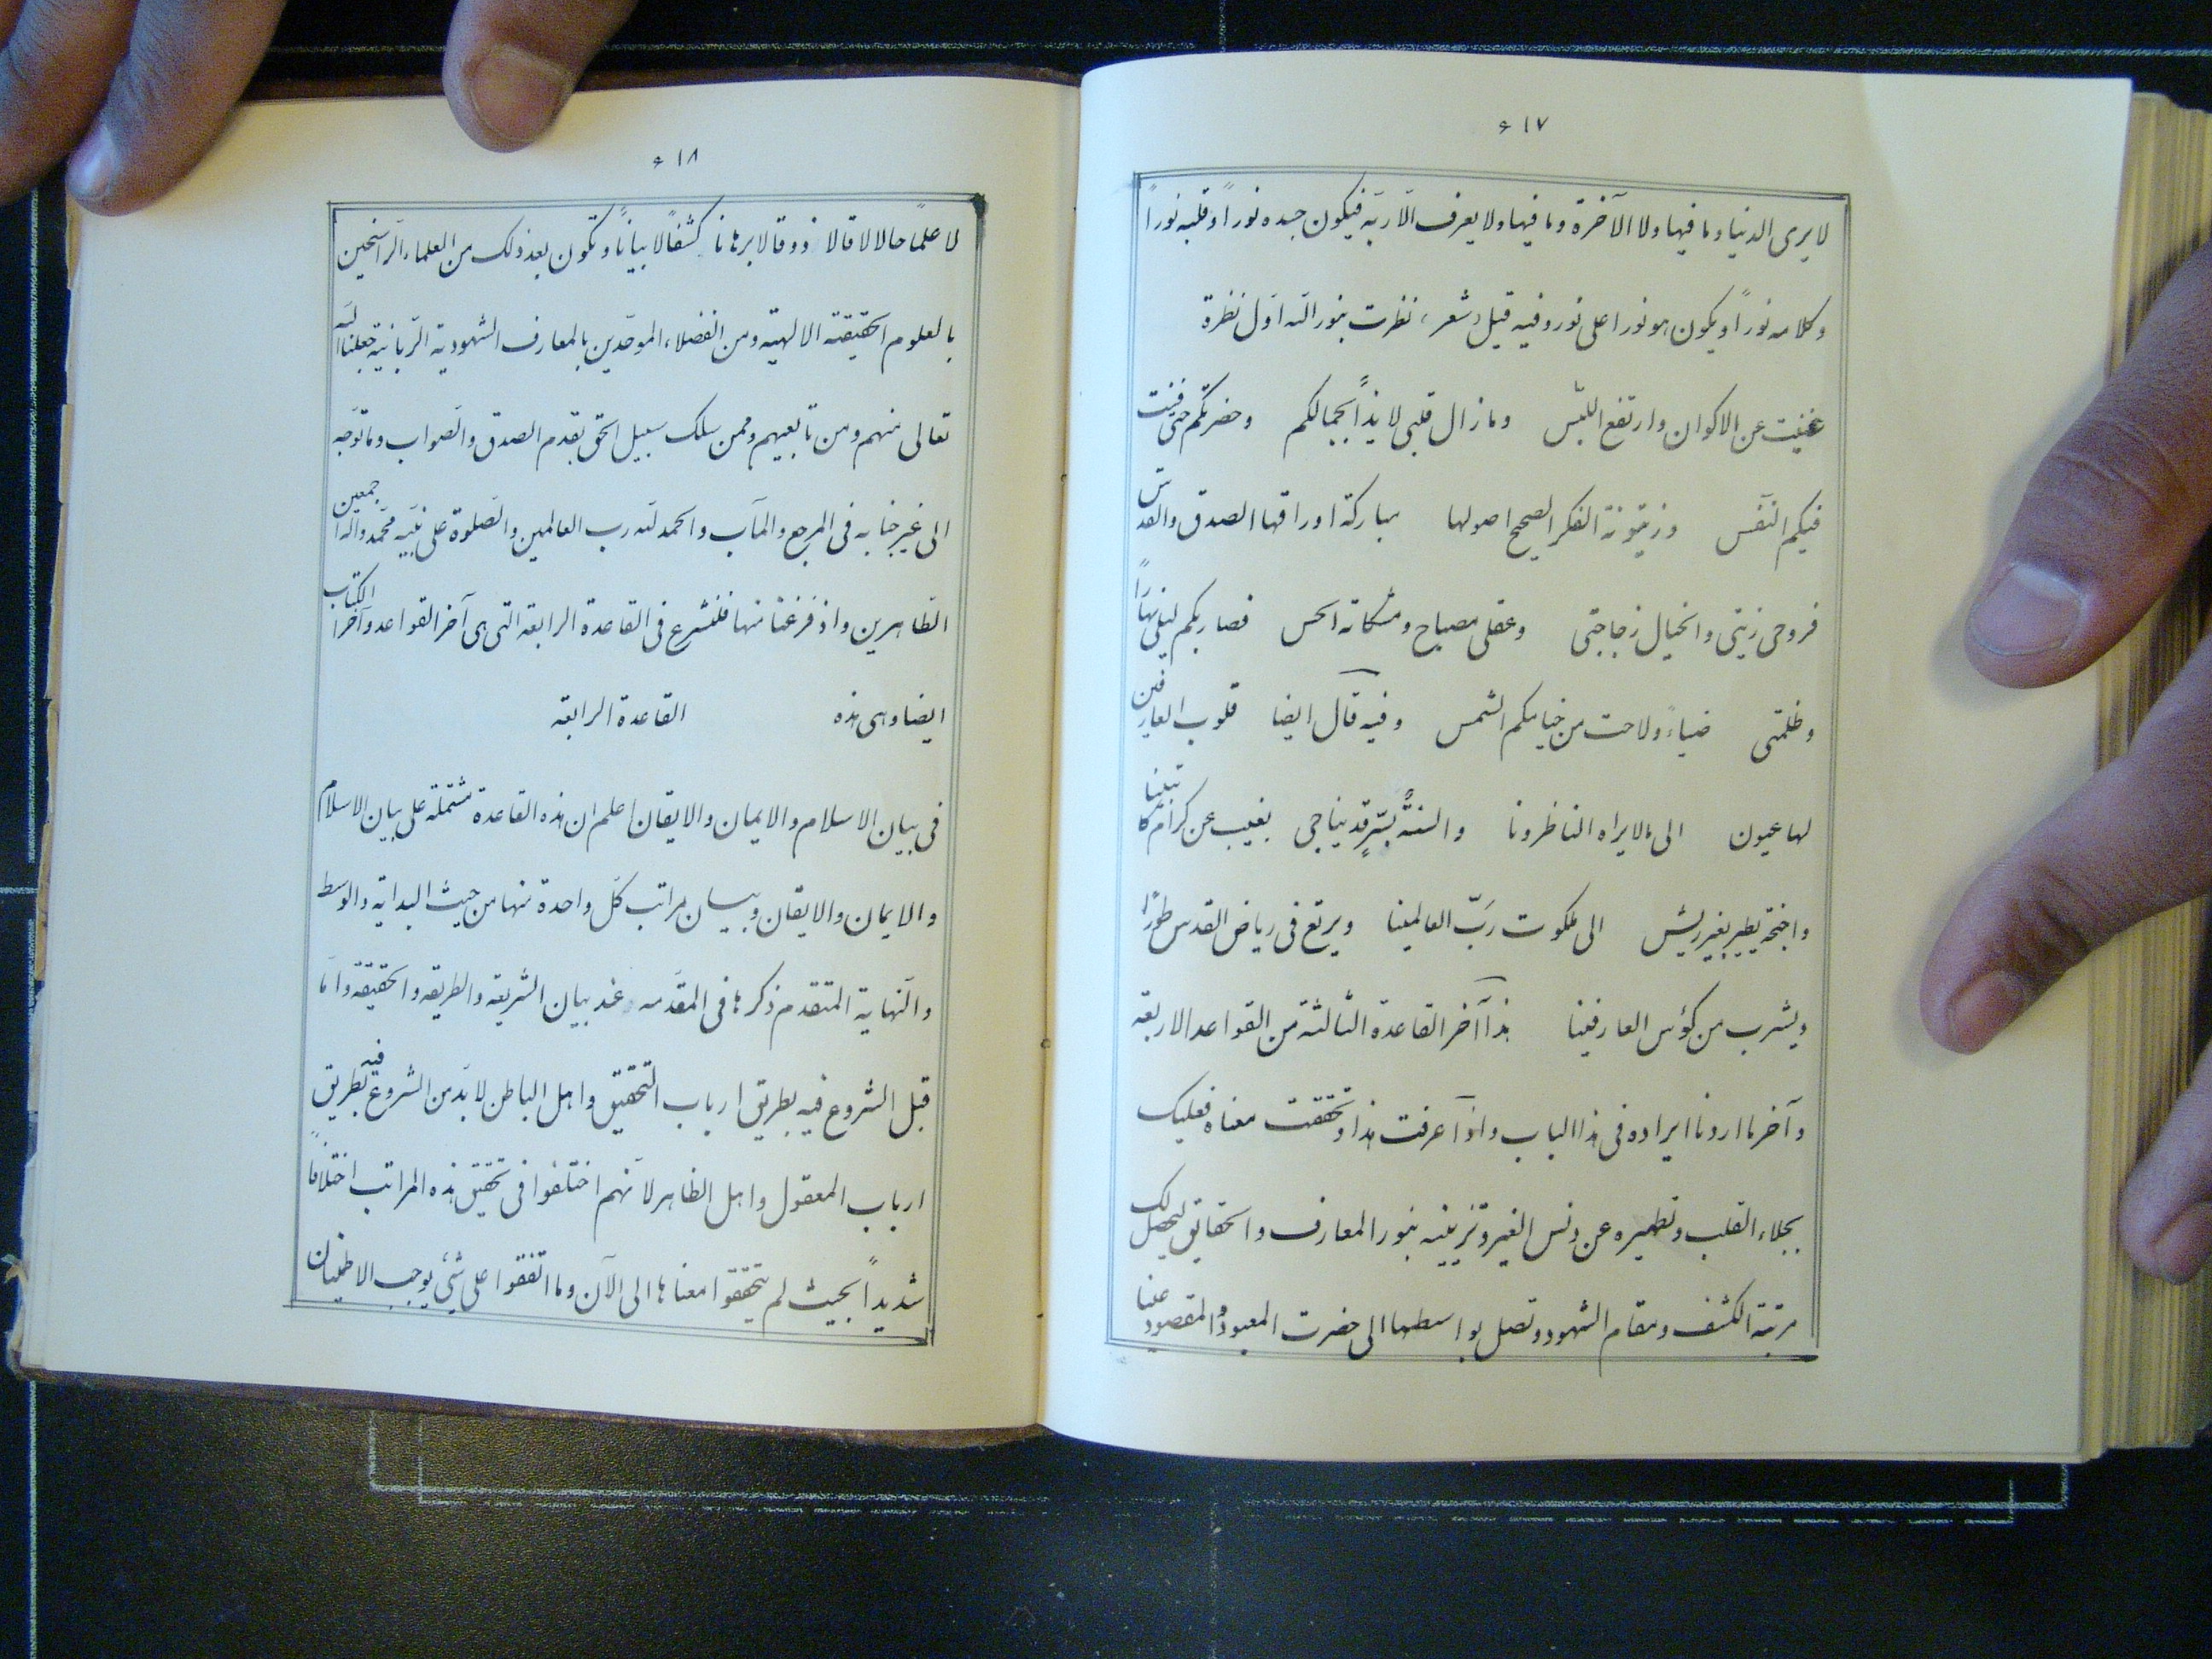 ٦١٧
لا يرى الدنيا وما فيها ولا الآخرة وما فيها ولا يعرف الّا ربّه فيكون جسده نوراً وقلبه نوراً
وكلامه نوراً ويكون هو نورا على نور وفيه قيل شعر، نظرت بنور الله اوّل نظرة
غنيت عن الاكوان وارتفع اللبس وما زال قلبى لايذاً بجمالكم وحضرتكم حتى فنيت
فيكم النّفس وزيتونة الفكر الصحيح اصولها مباركة اوراقها الصدق والقدس
فروحى زيتى والخيال زجاجتى وعقلى مصباح ومشكاته الحس فصار بكم ليلى نهاراً
وظلمتى ضياءً ولاحت من خيامكم الشمس وفيه قال ايضا قلوب العارفين
لها عيون الى ما لا يراه الناظرونا والسنةٌ بسّرٍ قد يناجى بغيب عن كرام كاتبينا
واجنحة يطير بغير ريش الى ملكوت ربّ العالمينا ويرتع فى رياض القدس طوراً
ويشرب من كؤس العارفينا هذا آخر القاعدة الثالثة من القواعد الاربعة
وآخر ما اردنا ايراده فى هذا الباب واذا عرفت هذا وتحققت معناه فعليك
بجلاء القلب وتطهيره عن دنس الغير وتزيينه بنور المعارف والحقايق ليحصل لك
مرتبة الكشف ومقام الشهود وتصل بواسطهما الى حضرت المعبود والمقصود عينا
٦١٨
لا علماً حالا لا قالا ذوقا لا برهانا كشفاً لا بياناً وتكون بعد ذلك من العلماء الرّاسخين
بالعلوم الحقيقة الالهية ومن الفضلاء الموحّدين بالمعارف الشهودية الرّبانية جعلنا الله
تعالى منهم ومن تابعيهم وممن سلك سبيل الحق بقدم الصدق والصّواب وما توجّه
الى غير جنابه فى المرجع والمآب والحمد لله رب العالمين والصّلوة على نبيّه محمّد وآله اجمعين
الطّاهرين واذ فرغنا منها فلنشرع فى القاعدة الرابعه التى هى آخر القواعد وآخر الكتاب
ايضا وهى هذه القاعدة الرابعة
فى بيان الاسلام والايمان والايقان اعلم ان هذه القاعدة مشتملة على بيان الاسلام
والايمان والايقان وبيان مراتب كلّ واحدة منها من حيث البداية والوسط
والنّهاية المتقدم ذكرها فى المقدّمه عند بيان الشريعه والطريقه والحقيقه وامّا
قبل الشروع فيه بطريق ارباب التحقيق واهل الباطن لا بدّ من الشروع فيه بطريق
ارباب المعقول واهل الظاهر لانّهم اختلفوا فى تحقيق هذه المراتب اختلافاً
شديداً بحيث لم يتحققوا معناها الى الآن وما اتفقوا على شيء يوجب الاطمينان